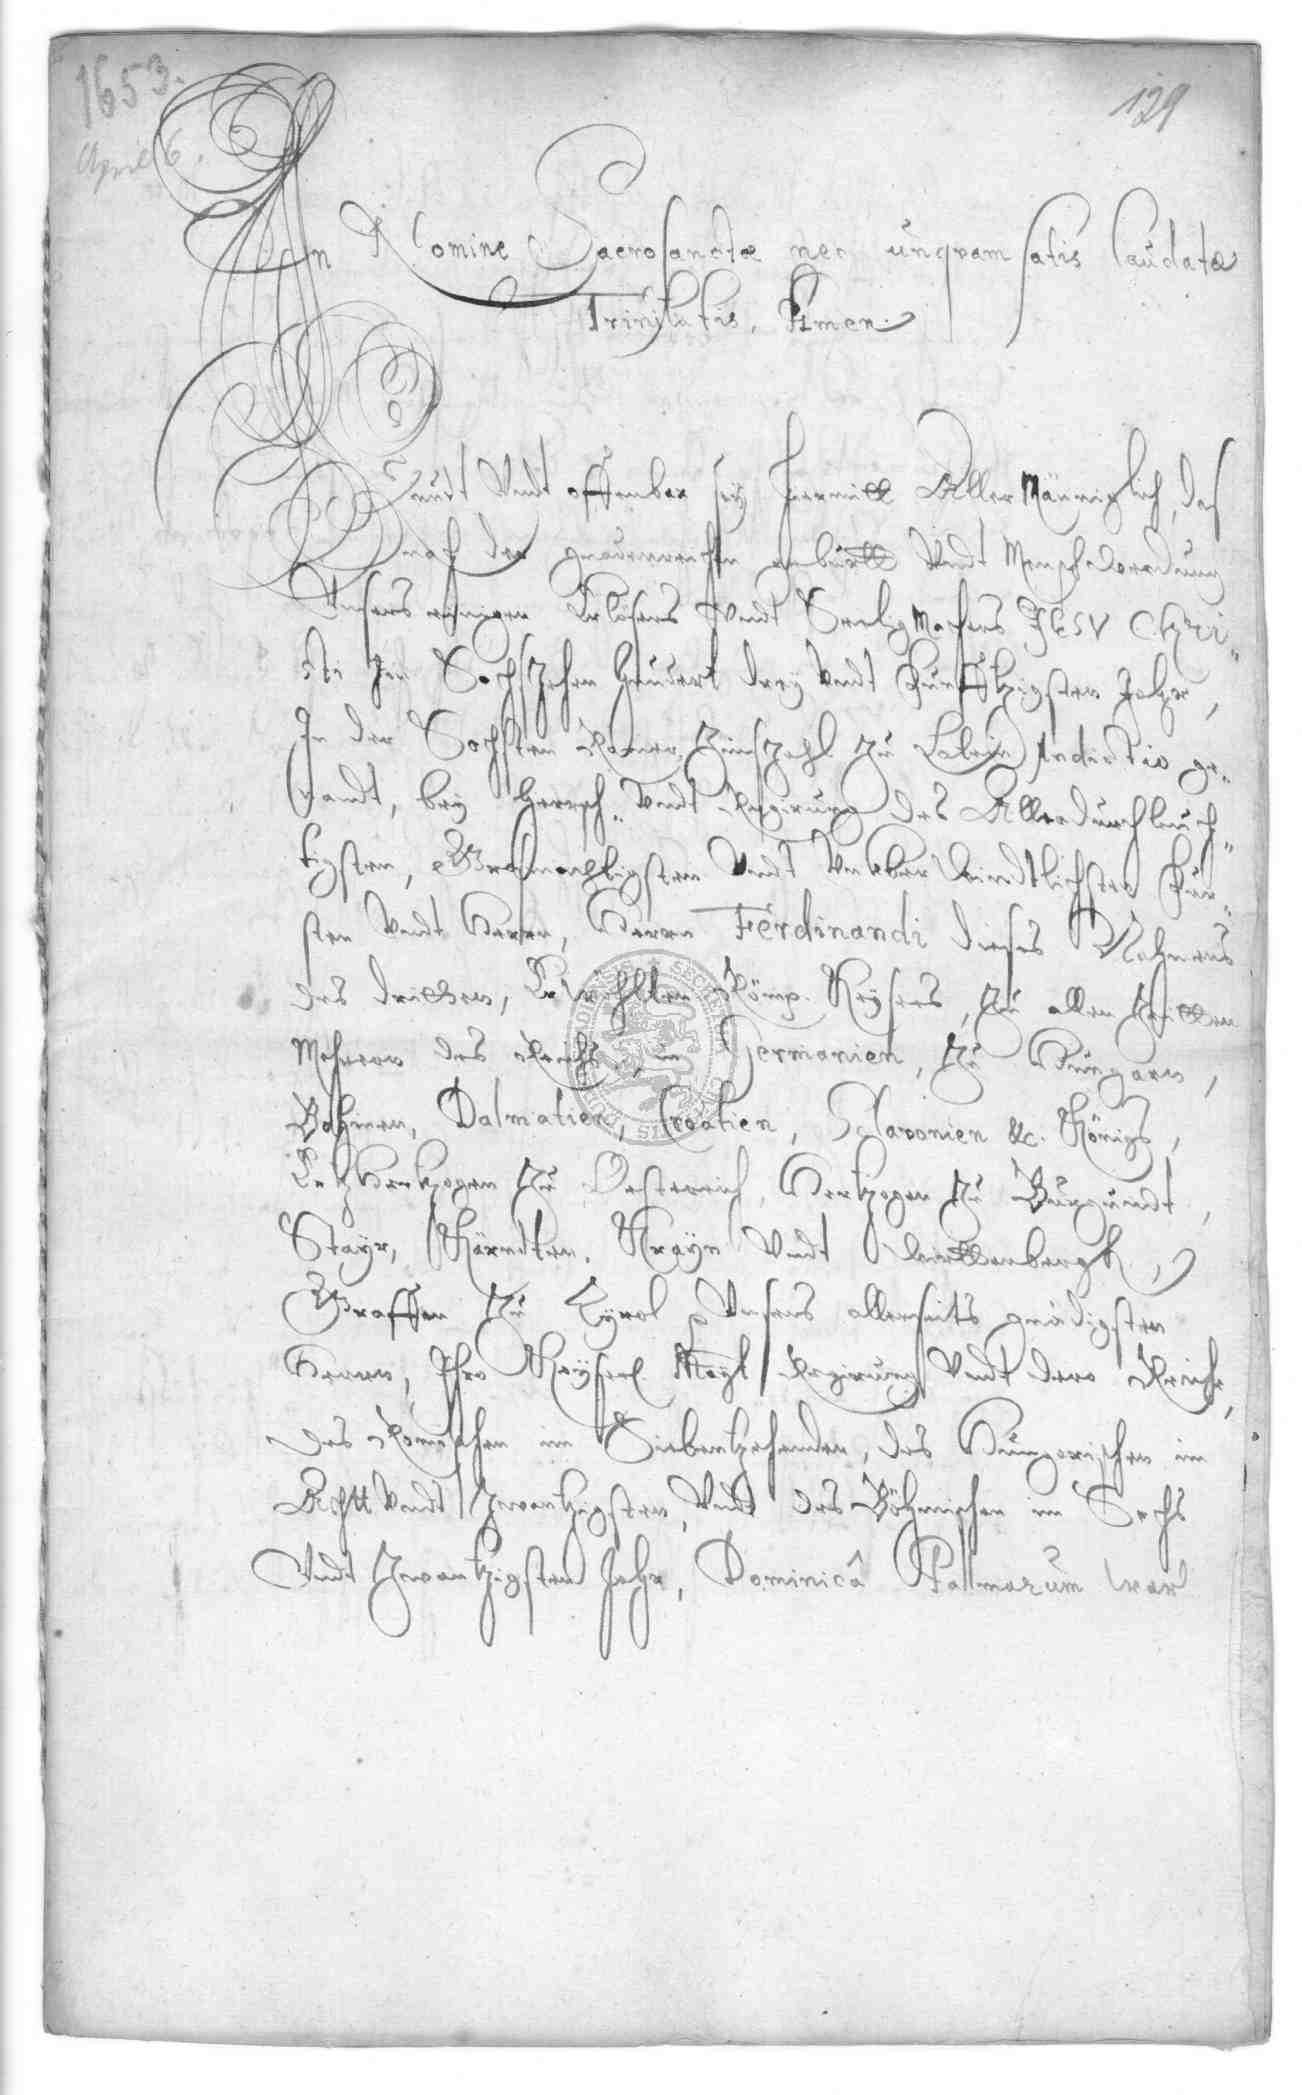 1653.
April 6.
129
In Nomine Sacrosanctæ nec unqvam satis laudatæ
Trinitatis, Amen.
Kundt Vndt offenbar sey hiermitt Aller Männiglich, das
nach der gnadenreichen gebuhrtt Vndt Menschwerdung
Vnsers einigen Erlösers Vndt Seeligmachers JESV Chri„
sti Im Sechszehen hundert drey Vndt Funfftzigsten Jahre,
In der Sechsten Römer Zinszahl Zu Latein Indictio ge„
nandt, bey Herrsch„ Vndt Regierung des Allerdurchlauch„
tigsten, Grosmechtigsten Vndt Vnüberwindtlichsten Für„
sten Vndt Herrn, Herrn Ferdinandi dieses Nahmens
des dritten, Erwehlten Römis. Keysers, Zu allen Zeitten
Mehrern des Reichs, in Germanien, Zu Hungarn,
Böhmen, Dalmatien, Croatien, Sclavonien &c. Königs,
Ertzhertzogen Zu Österreich, Hertzogen Zu Burgundt,
Steyr, Kärndten, Krayn Vndt Wirttenbergk,
Graffen Zu Tyrol Vnsers allerseits gnädigsten
Herrn, Ihro Keyserl. Mayt Regierung Vndt dero Reiche,
des Römischen im Siebentzehenden, des Hungarischen im
Acht Vndt Zwantzigsten, Vndt des Böhmischen im Sechs
Vndt Zwantzigsten Jahr, Dominicâ Palmarum war